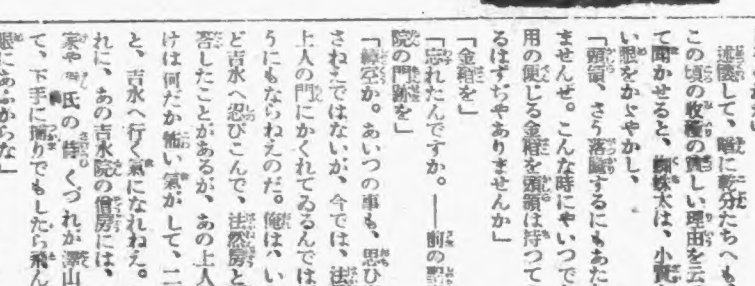 述懷して、暗に乾分たちへも
この頃の收穫の貧しい理由を云
て聞かせると、蜘蛛太は、小賢
い眼をかゞやかし、
「頭領、さう落膽するにもあた
ませんぜ。こんな時にやいつで
用の便じる金箱を頭領は持つて
るはずぢやありませんか」
「金箱を」
「忘れたんですか。――前の聖
院の門跡を」
「綽空か。あいつの事も、思ひ
さねえではないが、今では、法
上人の門にかくれてゐるんでは
うにもならねえのだ。俺は、い
ど吉水へ忍びこんで、法然房と
答したことがあるが、あの上人
けは何だか怖い氣がして、二
と、吉水へ行く氣になれねえ。
れに、あの吉水院の僧房には、
家や 氏の侍くづれが澤山
て、下手に捕りでもしたら飛ん
眼にあふからな」